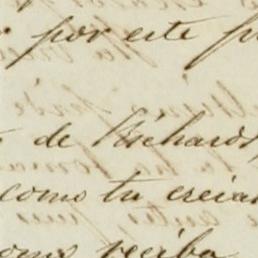 por este
de Richards,
como tu creias
como reciba